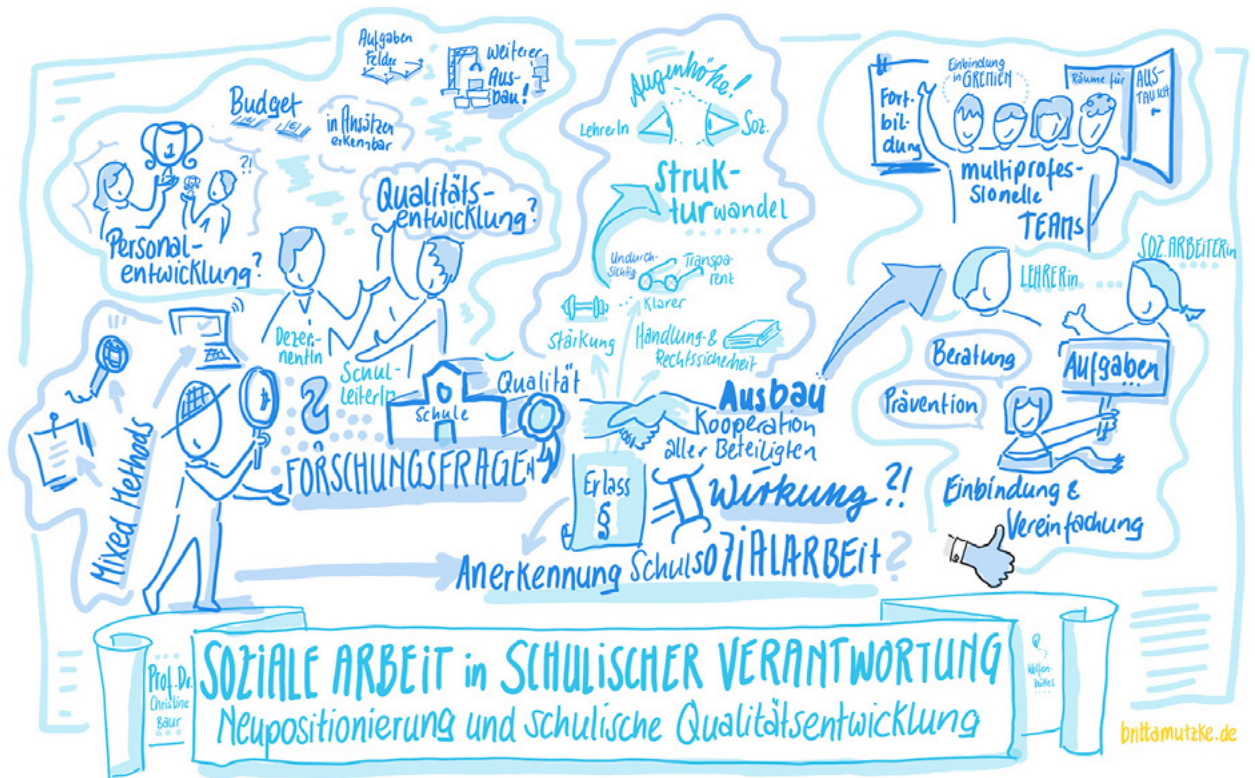 Aufgaben
Felder
weiterer
Aus-
bau!
Budget
in Ansätzen
erkennbar
1
?!
Personal-
entwicklung?
Qualitäts-
entwicklung?
DezernentIn
Schul-
leiterIn
?
Mixed Methods
Schule
Qualität
FORSCHUNGSFRAGEN
Augenhöhe!
LehrerIn
Soz.
Struk-
turwandel
Undurch-
sichtig
Transpa-
rent
Klarer
Stärkung
Handlung- &
Rechtssicherheit
Ausbau
Kooperation
aller Beteiligten
Erlass
§
Wirkung?!
Anerkennung SchulSOZIALARBEIT?
Fort-
bil-
dung
Einbindung
in GREMIEN
Räume für
AUS-
TAUSCH
multiprofes-
sionelle
TEAMS
LEHRERin
SOZ.ARBEITERin
Beratung
Prävention
Aufgaben
Einbindung &
Vereinfachung
Prof. Dr.
Christine
Baur
SOZIALE ARBEIT in SCHULISCHER VERANTWORTUNG
Neupositionierung und schulische Qualitätsentwicklung
Wolfen-
büttel
brittamutzke.de